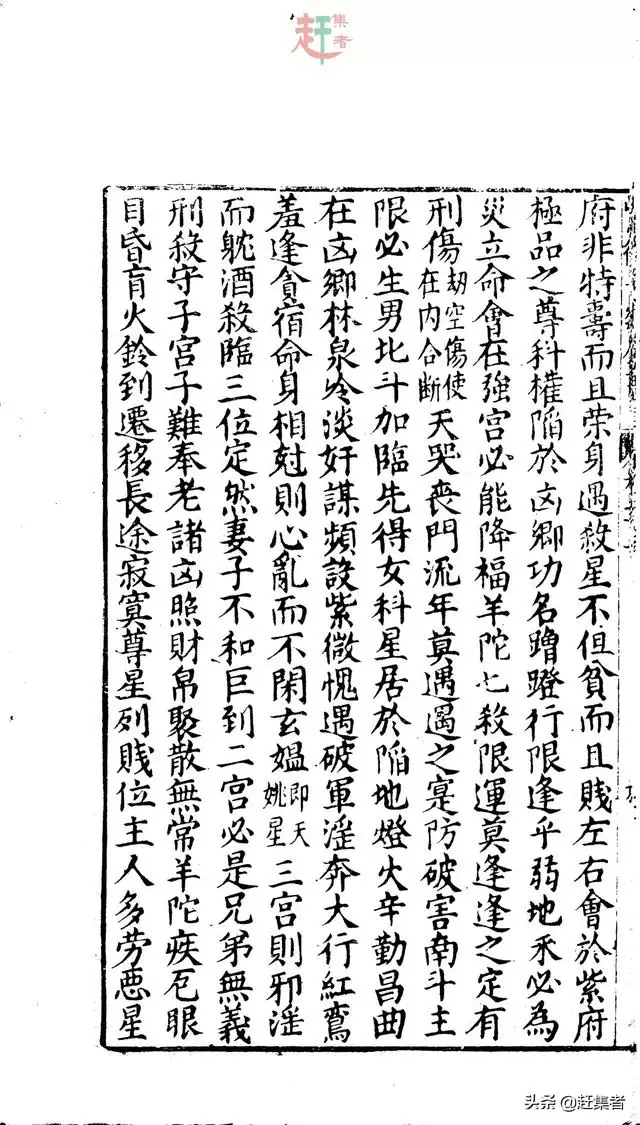 赶集者
府非特壽而且荣身遇殺星不但貧而且賤左右會於紫府
極品之尊科權陷於凶鄉功名蹭蹬行限逢乎弱地未必為
災立命會在強宮必能降福羊陀七殺限運莫逢逢之定有
刑傷劫空傷使在内合断天哭喪門流年莫遇遇之寔防破害南斗主
限必生男北斗加臨先得女科星居於陷地燈火辛勤昌曲
在凶鄉林泉冷淡奸謀頻設紫微愧遇破軍淫奔大行紅鸞
羞逢貪宿命身相尅則心亂而不閑玄媼即天姚星三宮則邪淫
而躭酒殺臨三位定然妻子不和巨到二宮必是兄弟無義
刑殺守子宮子難奉老諸凶照財帛聚散無常羊陀疾厄眼
目昏盲火鈴到遷移長途寂寞尊星列賤位主人多劳惡星
头条 @赶集者